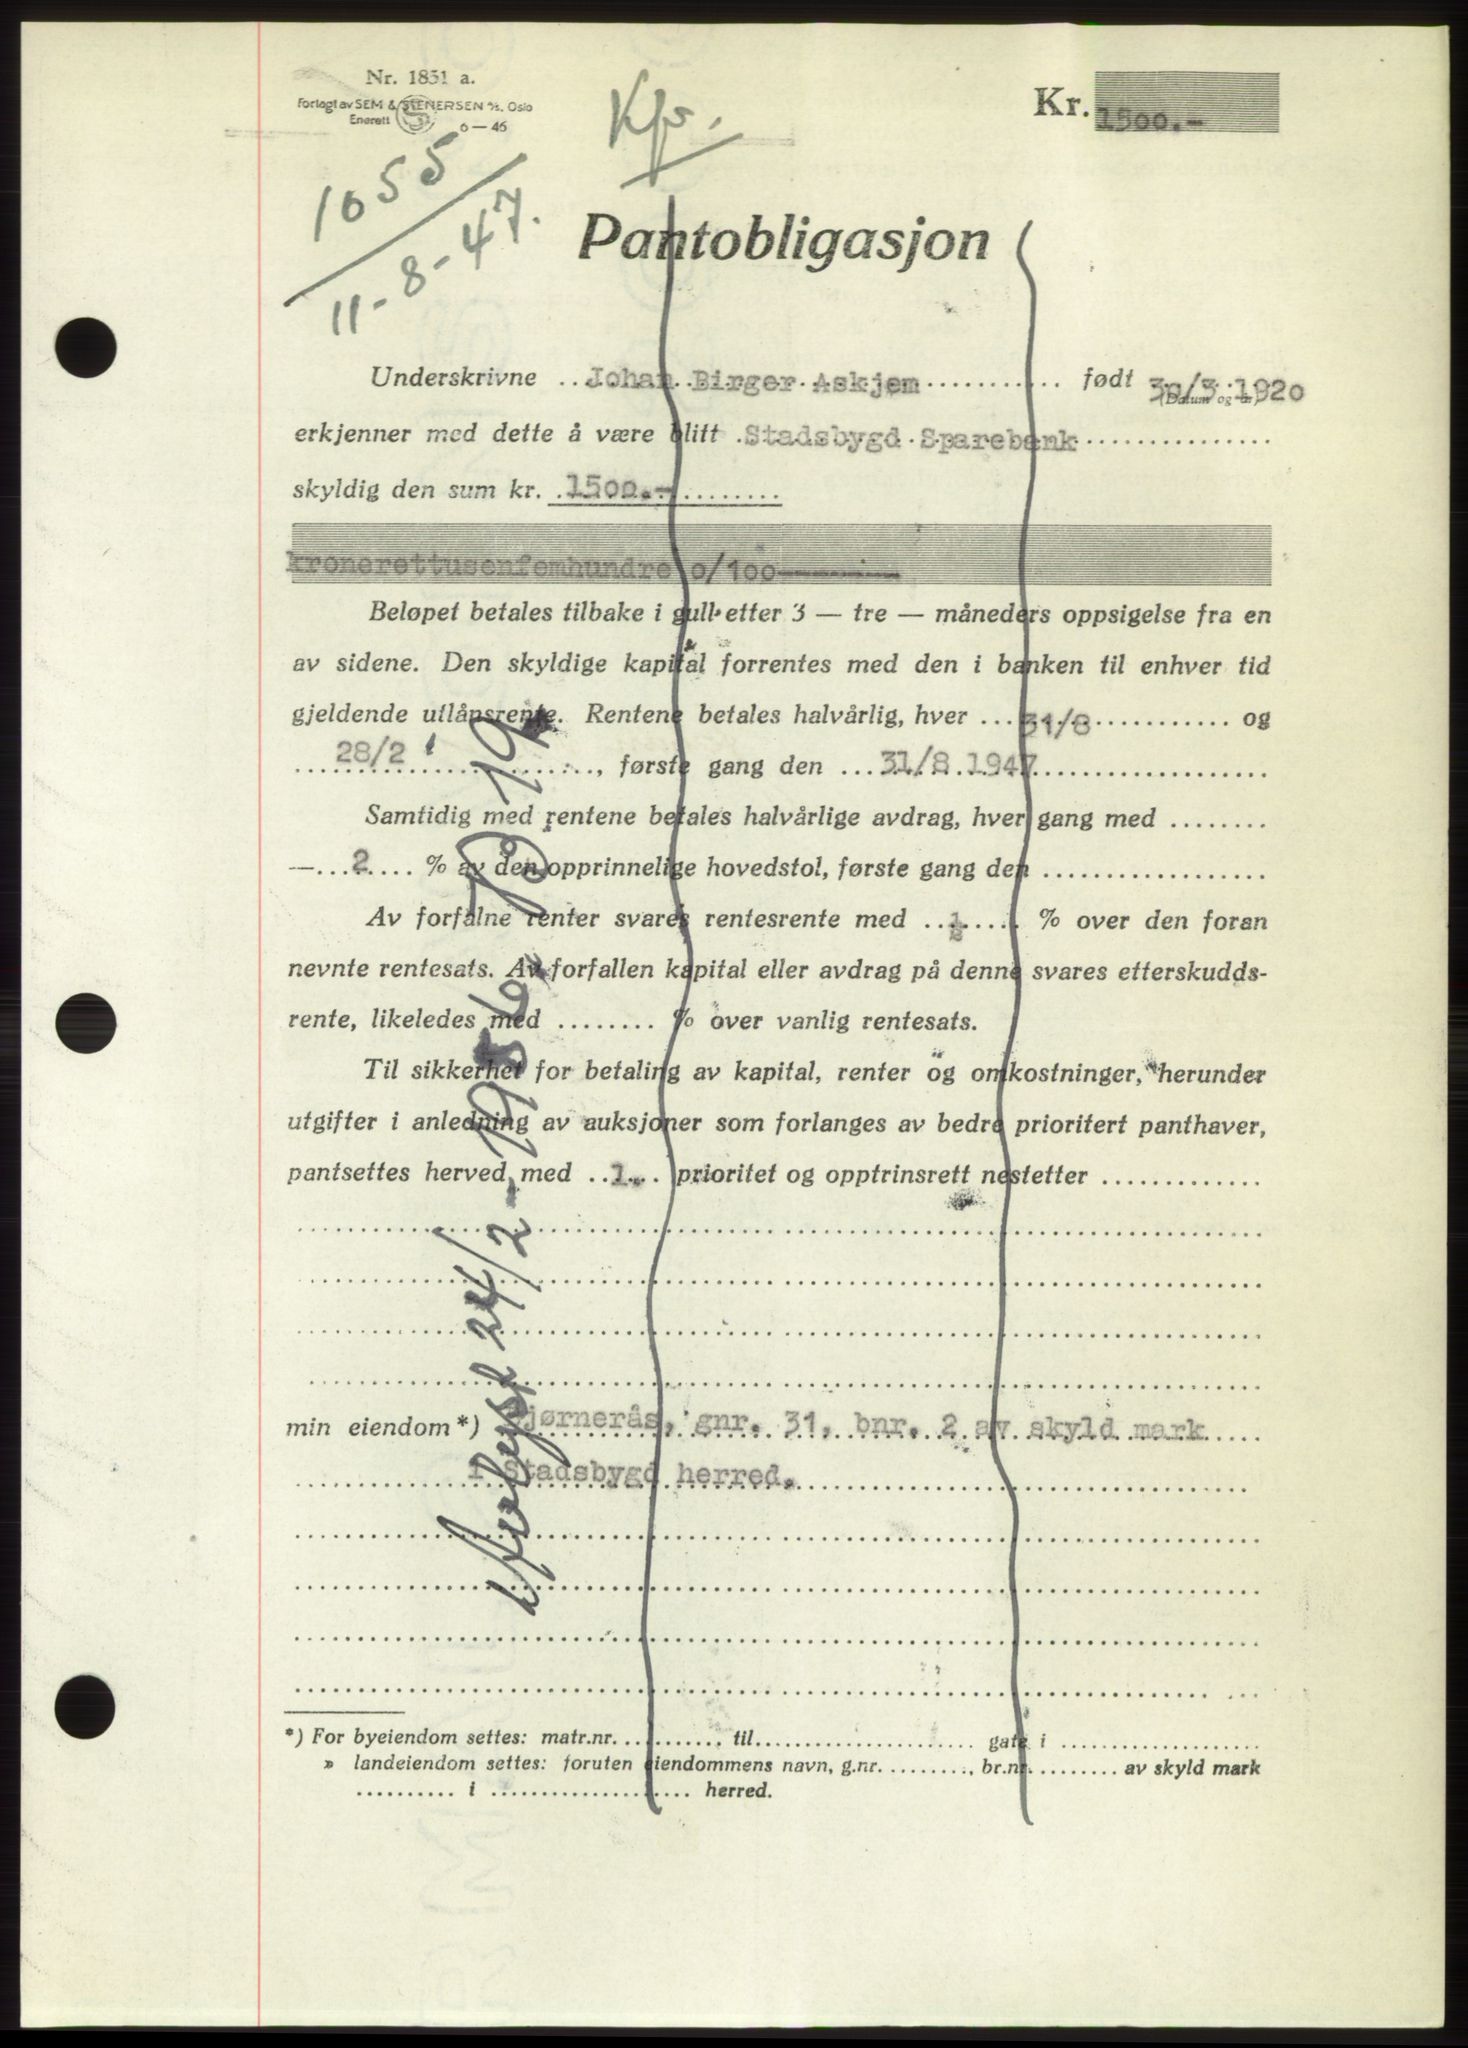 Nr. 1851 a.
Forlagt av SEM & STENERSEN A/S. Oslo
Enerett
6 — 46
Kfr.
Kr. 1500.-
1055
11-8-47.
Pantobligasjon
Underskrivne .. Johan Birger Askjem ............ født 30/3 1920
(Datum og år)
erkjenner med dette å være blitt .Stadsbygd Sparebank ................
skyldig den sum kr. . 1500.- ........
kronerettusenfemhundre 0/100----------
Beløpet betales tilbake i gull etter 3 — tre — måneders oppsigelse fra en
av sidene. Den skyldige kapital forrentes med den i banken til enhver tid
gjeldende utlånsrente. Rentene betales halvårlig, hver ... 31/8 ............ og
28/2 ............, første gang den ... 31/8 1947 ...................
Samtidig med rentene betales halvårlige avdrag, hver gang med ........
—... 2 .... % av den opprinnelige hovedstol, første gang den ..................
Av forfalne renter svares rentesrente med .. ½ .... % over den foran
nevnte rentesats. Av forfallen kapital eller avdrag på denne svares etterskudds-
rente, likeledes med ........ % over vanlig rentesats.
Til sikkerhet for betaling av kapital, renter og omkostninger, herunder
utgifter i anledning av auksjoner som forlanges av bedre prioritert panthaver,
pantsettes herved med .. 1. .. prioritet og opptrinsrett nestetter .............
min eiendom*) Bjørnerås, gnr. 31, bnr. 2 av skyld mark
i Stadsbygd herred.
Avlyst 24/2-1956
*) For byeiendom settes: matr.nr. .......... til...................... gate i ....................
» landeiendom settes: foruten eiendommens navn, g.nr. ........., br.nr. ......... av skyld mark
.......... i .................... herred.